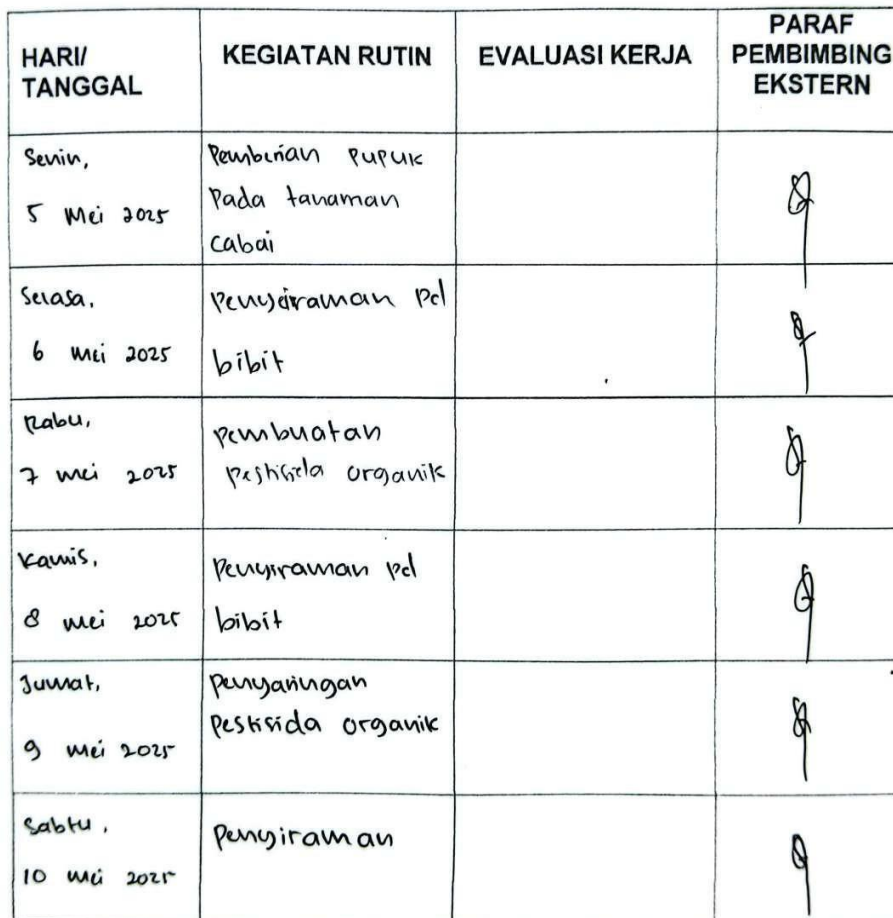 HARI/
TANGGAL
KEGIATAN RUTIN
EVALUASI KERJA
PARAF
PEMBIMBING
EKSTERN
Senin,
5 Mei 2025
Pemberian pupuk
Pada tanaman
cabai
Selasa,
6 mei 2025
Penyiraman pd
bibit
Rabu,
7 mei 2025
pembuatan
pestisida organik
Kamis,
8 mei 2025
Penyiraman pd
bibit
Jumat,
9 mei 2025
penyaringan
pestisida organik
Sabtu,
10 mei 2025
Penyiraman